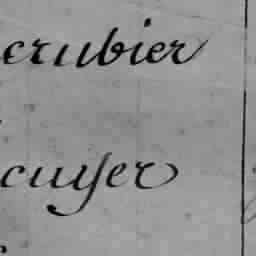 crubier
cuyer